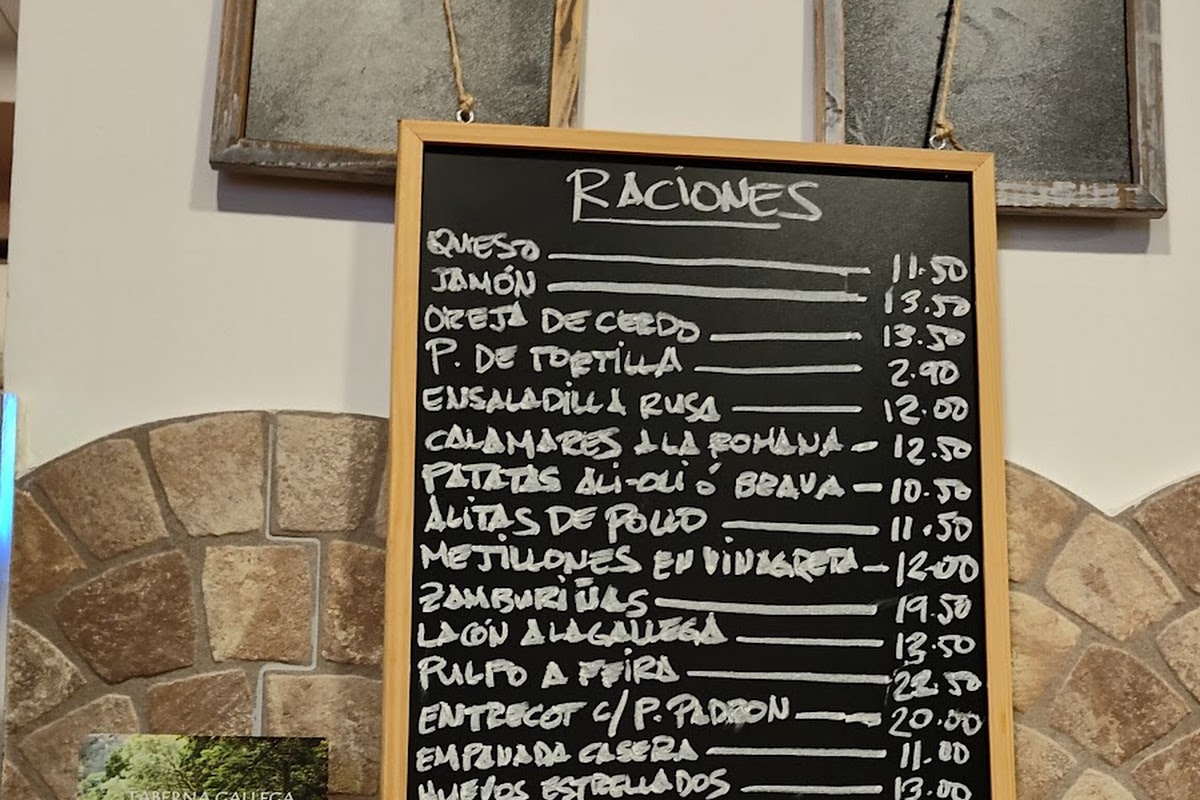 RACIONES
QUESO 11.50
JAMÓN 13.50
OREJA DE CERDO 13.50
P. DE TORTILLA 2.90
ENSALADILLA RUSA 12.00
CALAMARES A LA ROMANA 12.50
PATATAS ALI-OLI Ó BRAVA 10.50
ALITAS DE POLLO 11.50
MEJILLONES EN VINAGRETA 12.00
ZAMBURIÑAS 19.50
LACÓN A LA GALLEGA 13.50
PULPO A FEIRA 22.50
ENTRECOT C/ P. PADRON 20.00
EMPANADA CASERA 11.00
HUEVOS ESTRELLADOS 13.00
TABERNA GALLEGA